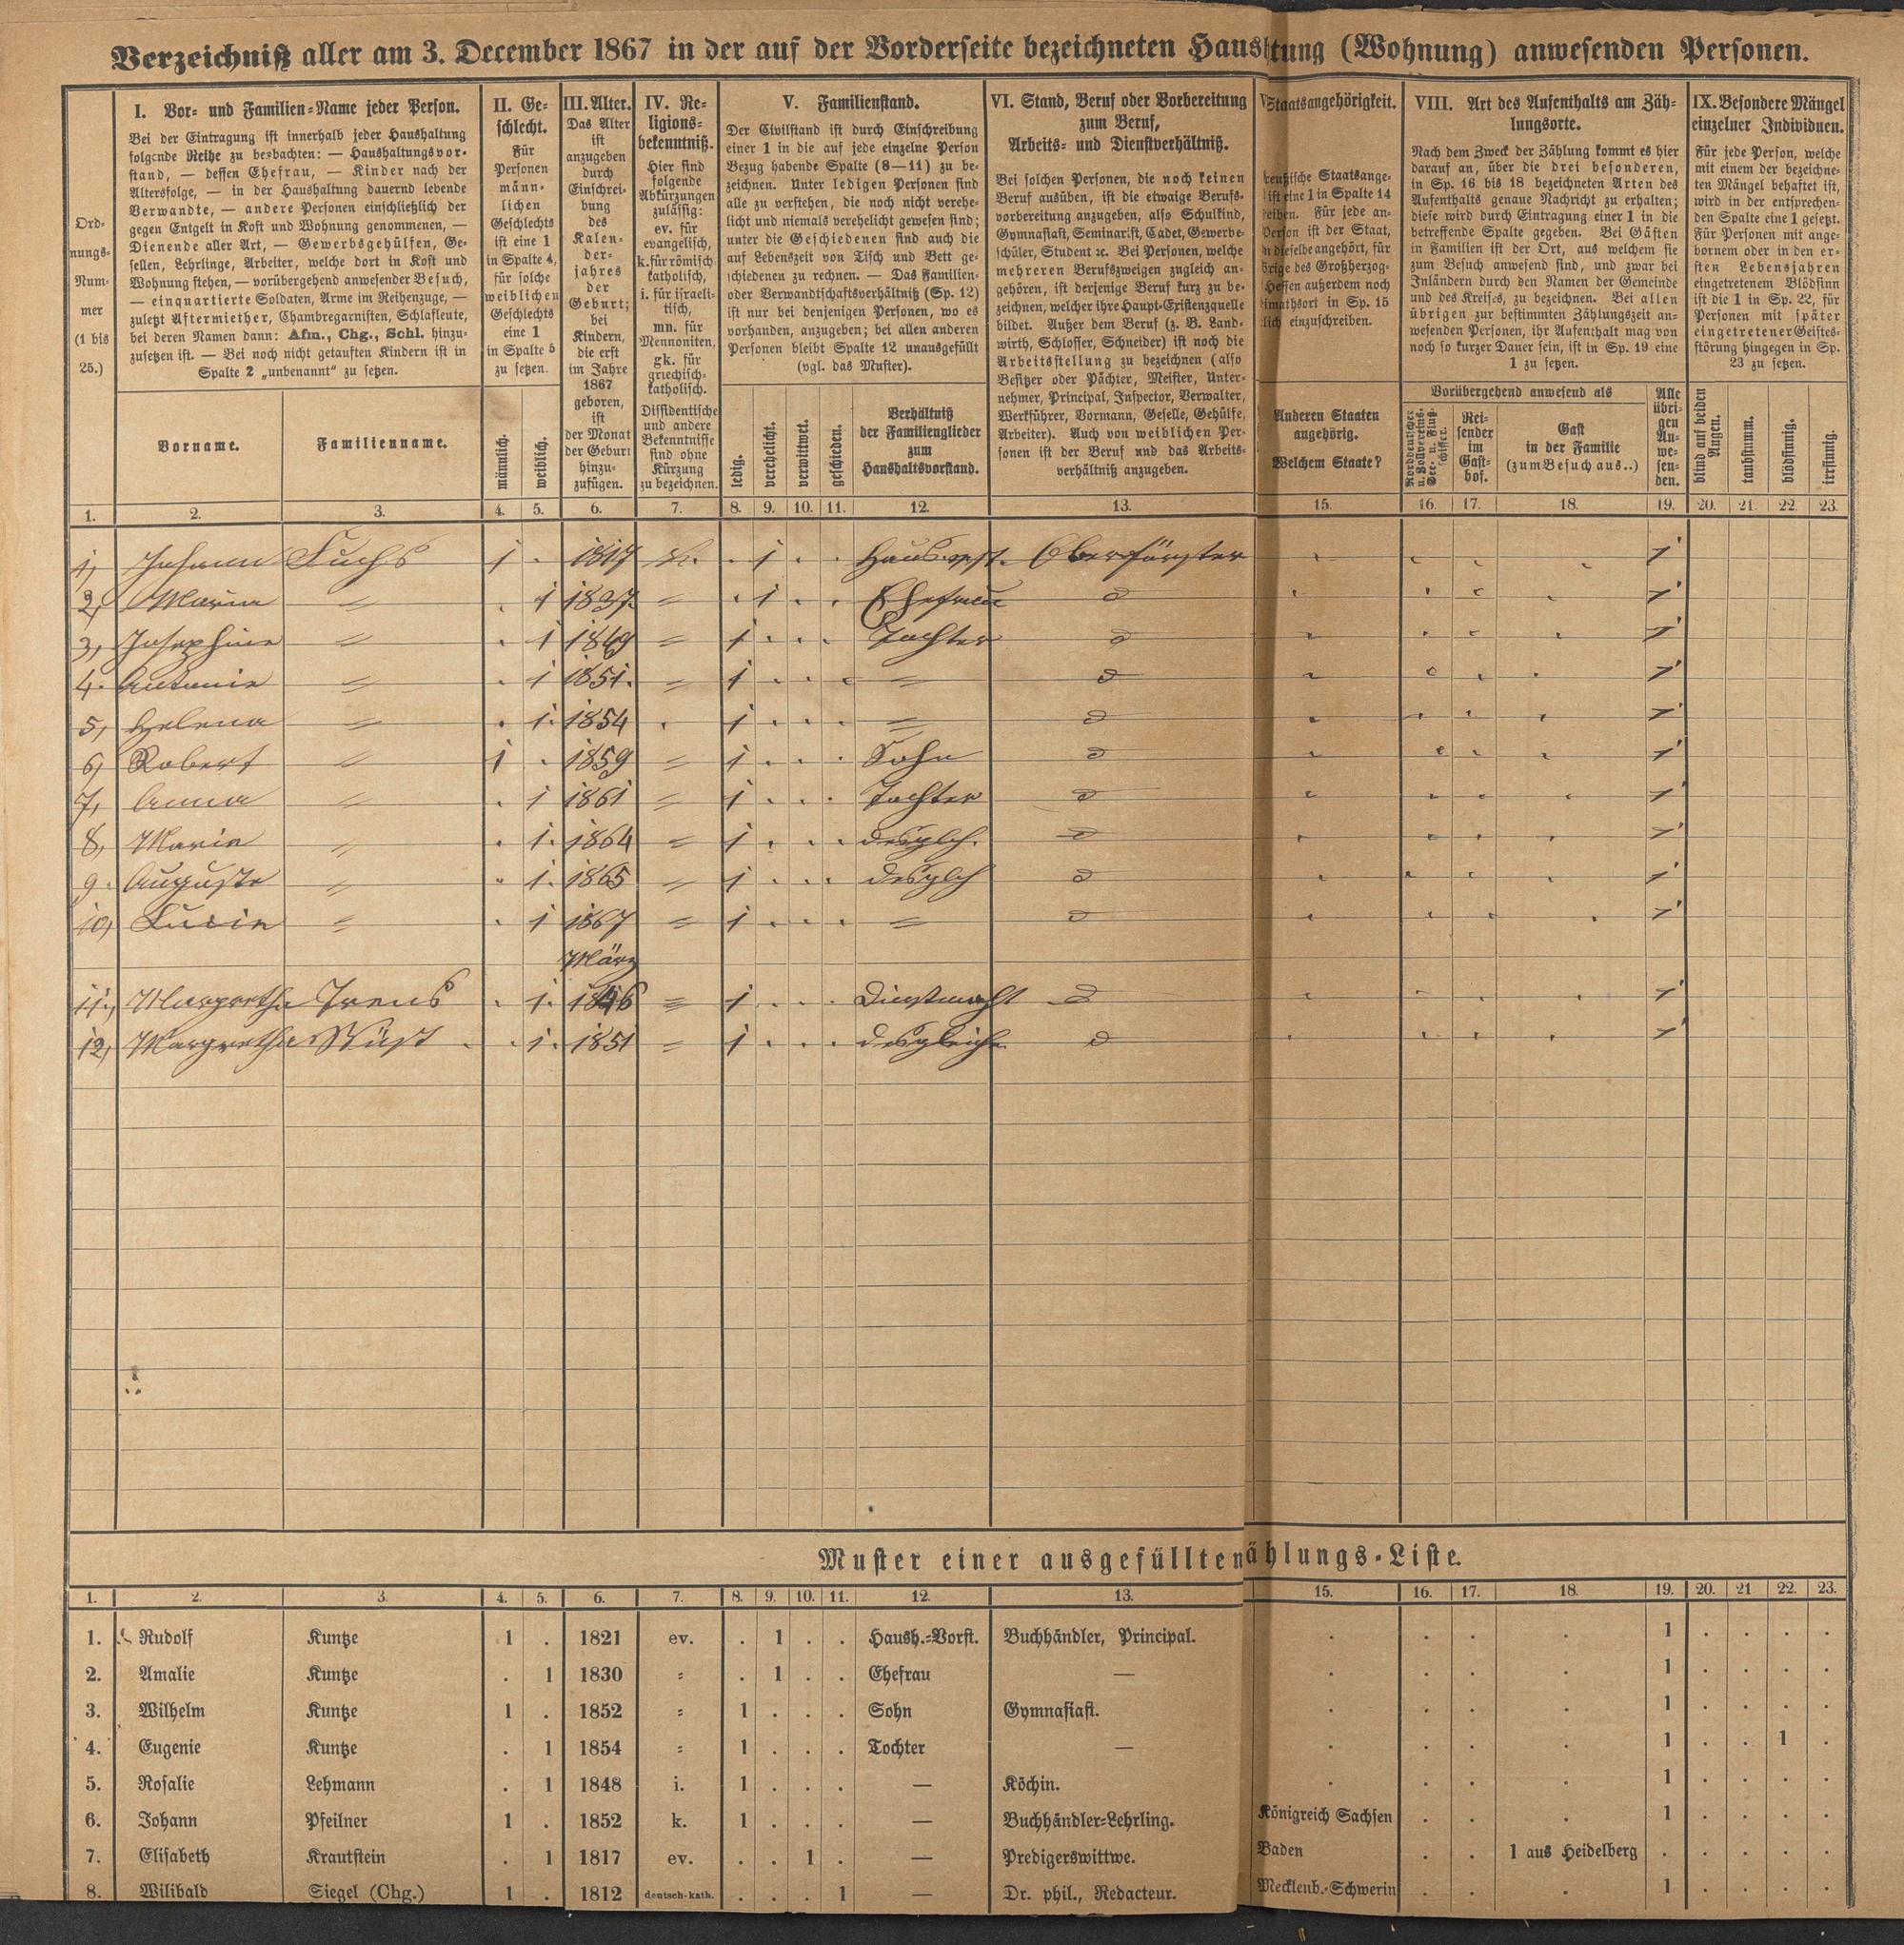 Verzeichniß aller am 3. December 1867 in der auf der Vorderseite bezeichneten Haus tung (Wohnung) anwesenden Personen.
Ord-
nungs-
Num-
mer
(1 bis
25.)
I. Vor- und Familien-Name jeder Person.
Bei der Eintragung ist innerhalb jeder Haushaltung
folgende Reihe zu beobachten: — Haushaltungsvor-
stand, — dessen Ehefrau, — Kinder nach der
Altersfolge, — in der Haushaltung dauernd lebende
Verwandte, — andere Personen einschließlich der
gegen Entgelt in Kost und Wohnung genommenen, —
Dienende aller Art, — Gewerbsgehülfen, Ge-
sellen, Lehrlinge, Arbeiter, welche dort in Kost und
Wohnung stehen, — vorübergehend anwesender Besuch,
— einquartierte Soldaten, Arme im Reihenzuge, —
zuletzt Aftermiether, Chambregarnisten, Schlafleute,
bei deren Namen dann: Afm., Chg., Schl. hinzu-
zusetzen ist. — Bei noch nicht getauften Kindern ist in
Spalte 2 „unbenannt“ zu setzen.
Vorname.
Familienname.
II. Ge-
schlecht.
Für
Personen
männ-
lichen
Geschlechts
ist eine 1
in Spalte 4,
für solche
weiblichen
Geschlechts
eine 1
in Spalte 5
zu setzen.
männlich.
weiblich.
III. Alter.
Das Alter
ist
anzugeben
durch
Einschrei-
bung
des
Kalen-
der-
jahres
der
Geburt;
bei
Kindern,
die erst
im Jahre
1867
geboren,
ist
der Monat
der Geburt
hinzu-
zufügen.
IV. Re-
ligions-
bekenntniß.
Hier sind
folgende
Abkürzungen
zulässig:
ev. für
evangelisch,
k. für römisch-
katholisch,
i. für israeli-
tisch,
mn. für
Mennoniten,
gk. für
griechisch-
katholisch.
Dissidentische
und andere
Bekenntnisse
sind ohne
Kürzung
zu bezeichnen.
V. Familienstand.
Der Civilstand ist durch Einschreibung
einer 1 in die auf jede einzelne Person
Bezug habende Spalte (8—11) zu be-
zeichnen. Unter ledigen Personen sind
alle zu verstehen, die noch nicht verehe-
licht und niemals verehelicht gewesen sind;
unter die Geschiedenen sind auch die
auf Lebenszeit von Tisch und Bett ge-
schiedenen zu rechnen. — Das Familien-
oder Verwandtschaftsverhältniß (Sp. 12)
ist nur bei denjenigen Personen, wo es
vorhanden, anzugeben; bei allen anderen
Personen bleibt Spalte 12 unausgefüllt
(vgl. das Muster).
ledig.
verehelicht.
verwittwet.
geschieden.
Verhältniß
der Familienglieder
zum
Haushaltsvorstand.
VI. Stand, Beruf oder Vorbereitung
zum Beruf,
Arbeits- und Dienstverhältniß.
Bei solchen Personen, die noch keinen
Beruf ausüben, ist die etwaige Berufs-
vorbereitung anzugeben, also Schulkind,
Gymnasiast, Seminarist, Cadet, Gewerbe-
schüler, Student ꝛc. Bei Personen, welche
mehreren Berufszweigen zugleich an-
gehören, ist derjenige Beruf kurz zu be-
zeichnen, welcher ihre Haupt-Existenzquelle
bildet. Außer dem Beruf (z. B. Land-
wirth, Schlosser, Schneider) ist noch die
Arbeitsstellung zu bezeichnen (also
Besitzer oder Pächter, Meister, Unter-
nehmer, Principal, Inspector, Verwalter,
Werkführer, Vormann, Geselle, Gehülfe,
Arbeiter). Auch von weiblichen Per-
sonen ist der Beruf und das Arbeits-
verhältniß anzugeben.
Staatsangehörigkeit.
reußische Staatsange-
ist eine 1 in Spalte 14
eiben. Für jede an-
Person ist der Staat,
dieselbe angehört, für
örige des Großherzog-
Hessen außerdem noch
imathsort in Sp. 15
lich einzuschreiben.
Anderen Staaten
angehörig.
Welchem Staate?
VIII. Art des Aufenthalts am Zäh-
lungsorte.
Nach dem Zweck der Zählung kommt es hier
darauf an, über die drei besonderen,
in Sp. 16 bis 18 bezeichneten Arten des
Aufenthalts genaue Nachricht zu erhalten;
diese wird durch Eintragung einer 1 in die
betreffende Spalte gegeben. Bei Gästen
in Familien ist der Ort, aus welchem sie
zum Besuch anwesend sind, und zwar bei
Inländern durch den Namen der Gemeinde
und des Kreises, zu bezeichnen. Bei allen
übrigen zur bestimmten Zählungszeit an-
wesenden Personen, ihr Aufenthalt mag von
noch so kurzer Dauer sein, ist in Sp. 19 eine
1 zu setzen.
Vorübergehend anwesend als
Norddeutscher
u. Zollvereins-
See- u. Fluß-
schiffer.
Rei-
sender
im
Gast-
hof.
Gast
in der Familie
(zum Besuch aus..)
Alle
übri-
gen
An-
we-
sen-
den.
IX. Besondere Mängel
einzelner Individuen.
Für jede Person, welche
mit einem der bezeichne-
ten Mängel behaftet ist,
wird in der entsprechen-
den Spalte eine 1 gesetzt.
Für Personen mit ange-
bornem oder in den er-
sten Lebensjahren
eingetretenem Blödsinn
ist die 1 in Sp. 22, für
Personen mit später
eingetretener Geistes-
störung hingegen in Sp.
23 zu setzen.
blind auf beiden
Augen.
taubstumm.
blödsinnig.
irrsinnig.
1. 2. 3. 4. 5. 6. 7. 8. 9. 10. 11. 12. 13. 15. 16. 17. 18. 19. 20. 21. 22. 23.
1, Johann Fuchs 1 . 1817 k. . 1 . . Hausvorst. Oberförster 1
2, Maria " . 1 1827. " . 1 . . Ehefrau 1
3, Josephine " . 1 1849 " 1 . . . Tochter 1
4. Antonie " . 1 1851. " 1 . . . " 1
5, Helena " . 1. 1854 . 1 . . . " 1
6, Robert " 1 . 1859 " 1 . . . Sohn 1
7, Anna " . 1 1861 " 1 . . . Tochter 1
8, Maria " . 1. 1864 " 1 . . . desglch. 1
9. Auguste " . 1. 1865 " 1 . . . desglch 1
10, Lucie " . 1 1867 " 1 . . . " 1
März
11., Margretha Irens . 1. 1846 " 1 . . . Dienstmagd 1
12, Margretha Wüst . . 1. 1851 " 1 . . . desgleiche 1
Muster einer ausgefüllten ählungs-Liste.
1. 2. 3. 4. 5. 6. 7. 8. 9. 10. 11. 12. 13. 15. 16. 17. 18. 19. 20. 21 22. 23.
1. Rudolf Kuntze 1 . 1821 ev. . 1 . . Haush.-Vorst. Buchhändler, Principal. . . . . 1 . . . .
2. Amalie Kuntze . 1 1830 " . 1 . . Ehefrau — . . . . 1 . . . .
3. Wilhelm Kuntze 1 . 1852 " 1 . . . Sohn Gymnasiast. . . . . 1 . . . .
4. Eugenie Kuntze . 1 1854 " 1 . . . Tochter — . . . . 1 . . 1 .
5. Rosalie Lehmann . 1 1848 i. 1 . . . — Köchin. . . . . 1 . . . .
6. Johann Pfeilner 1 . 1852 k. 1 . . . — Buchhändler-Lehrling. Königreich Sachsen . . . 1 . . . .
7. Elisabeth Krautstein . 1 1817 ev. . . 1 . — Predigerswittwe. Baden . . 1 aus Heidelberg . . . . .
8. Wilibald Siegel (Chg.) 1 . 1812 deutsch-kath. . . . 1 — Dr. phil., Redacteur. Mecklenb.-Schwerin . . . 1 . . . .